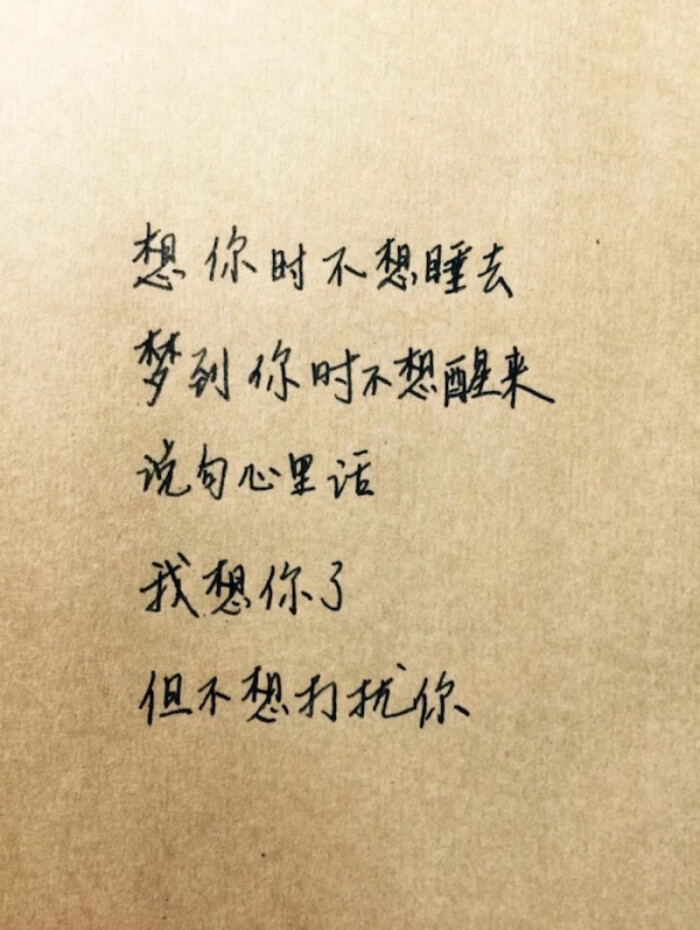 想你时不想睡去
梦到你时不想醒来
说句心里话
我想你了
但不想打扰你